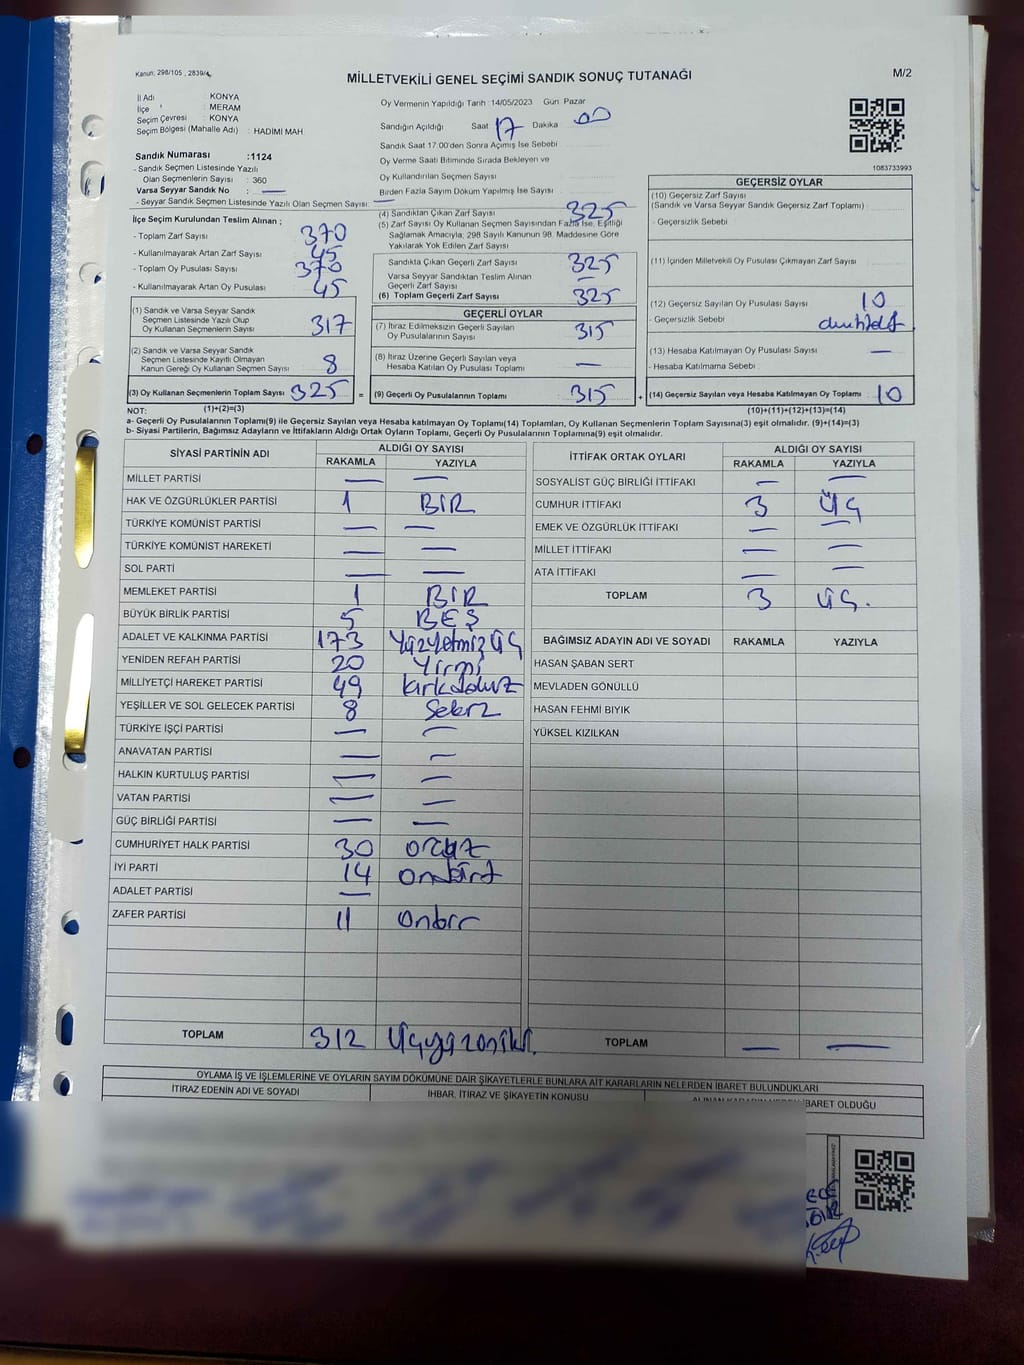 Kanun; 298/105 , 2839/4
MİLLETVEKİLİ GENEL SEÇİMİ SANDIK SONUÇ TUTANAĞI
M/2
İl Adı : KONYA
İlçe : MERAM
Seçim Çevresi : KONYA
Seçim Bölgesi (Mahalle Adı) : HADIMI MAH
Sandık Numarası :1124
- Sandık Seçmen Listesinde Yazılı
Olan Seçmenlerin Sayısı : 360
Varsa Seyyar Sandık No : —
- Seyyar Sandık Seçmen Listesinde Yazılı Olan Seçmen Sayısı: —
Oy Vermenin Yapıldığı Tarih :14/05/2023 Gün: Pazar
Sandığın Açıldığı Saat 17 Dakika 00
Sandık Saat 17.00'den Sonra Açımış İse Sebebi
Oy Verme Saati Bitiminde Sırada Bekleyen ve
Oy Kullandırılan Seçmen Sayısı
Birden Fazla Sayım Döküm Yapılmış İse Sayısı
1083733993
İlçe Seçim Kurulundan Teslim Alınan ;
- Toplam Zarf Sayısı 370
- Kullanılmayarak Artan Zarf Sayısı 45
- Toplam Oy Pusulası Sayısı 370
- Kullanılmayarak Artan Oy Pusulası 45
(1) Sandık ve Varsa Seyyar Sandık
Seçmen Listesinde Yazılı Olup
Oy Kullanan Seçmenlerin Sayısı 317
(2) Sandık ve Varsa Seyyar Sandık
Seçmen Listesinde Kayıtlı Olmayan
Kanun Gereği Oy Kullanan Seçmen Sayısı 8
(3) Oy Kullanan Seçmenlerin Toplam Sayısı 325 =
(4) Sandıktan Çıkan Zarf Sayısı 325
(5) Zarf Sayısı Oy Kullanan Seçmen Sayısından Fazla İse, Eşitliği
Sağlamak Amacıyla, 298 Sayılı Kanunun 98. Maddesine Göre
Yakılarak Yok Edilen Zarf Sayısı
Sandıkta Çıkan Geçerli Zarf Sayısı 325
Varsa Seyyar Sandıktan Teslim Alınan
Geçerli Zarf Sayısı —
(6) Toplam Geçerli Zarf Sayısı 325
GEÇERLİ OYLAR
(7) İtiraz Edilmeksizin Geçerli Sayılan
Oy Pusulalarının Sayısı 315
(8) İtiraz Üzerine Geçerli Sayılan veya
Hesaba Katılan Oy Pusulası Toplamı —
(9) Geçerli Oy Pusulalarının Toplamı 315 +
GEÇERSİZ OYLAR
(10) Geçersiz Zarf Sayısı
(Sandık ve Varsa Seyyar Sandık Geçersiz Zarf Toplamı)
- Geçersizlik Sebebi
(11) İçinden Milletvekili Oy Pusulası Çıkmayan Zarf Sayısı
(12) Geçersiz Sayılan Oy Pusulası Sayısı 10
- Geçersizlik Sebebi
(13) Hesaba Katılmayan Oy Pusulası Sayısı —
- Hesaba Katılmama Sebebi
(14) Geçersiz Sayılan veya Hesaba Katılmayan Oy Toplamı : 10
NOT: (1)+(2)=(3) (10)+(11)+(12)+(13)=(14)
a- Geçerli Oy Pusulalarının Toplamı(9) ile Geçersiz Sayılan veya Hesaba katılmayan Oy Toplamı(14) Toplamları, Oy Kullanan Seçmenlerin Toplam Sayısına(3) eşit olmalıdır. (9)+(14)=(3)
b- Siyasi Partilerin, Bağımsız Adayların ve İttifakların Aldığı Ortak Oyların Toplamı, Geçerli Oy Pusulalarının Toplamına(9) eşit olmalıdır.
SİYASİ PARTİNİN ADI ALDIĞI OY SAYISI
RAKAMLA YAZIYLA
MİLLET PARTİSİ — —
HAK VE ÖZGÜRLÜKLER PARTİSİ 1 BİR
TÜRKİYE KOMÜNİST PARTİSİ — —
TÜRKİYE KOMÜNİST HAREKETİ — —
SOL PARTİ — —
MEMLEKET PARTİSİ 1 BİR
BÜYÜK BİRLİK PARTİSİ 5 BEŞ
ADALET VE KALKINMA PARTİSİ 173 Yüzyetmiş üç
YENİDEN REFAH PARTİSİ 20 Yirmi
MİLLİYETÇİ HAREKET PARTİSİ 49 kırkdokuz
YEŞİLLER VE SOL GELECEK PARTİSİ 8 Sekiz
TÜRKİYE İŞÇİ PARTİSİ — —
ANAVATAN PARTİSİ — —
HALKIN KURTULUŞ PARTİSİ — —
VATAN PARTİSİ — —
GÜÇ BİRLİĞİ PARTİSİ — —
CUMHURİYET HALK PARTİSİ 30 otuz
İYİ PARTİ 14 ondört
ADALET PARTİSİ —
ZAFER PARTİSİ 11 onbir
TOPLAM 312 Üçyüzoniki.
İTTİFAK ORTAK OYLARI ALDIĞI OY SAYISI
RAKAMLA YAZIYLA
SOSYALİST GÜÇ BİRLİĞİ İTTİFAKI — —
CUMHUR İTTİFAKI 3 ÜÇ
EMEK VE ÖZGÜRLÜK İTTİFAKI — —
MİLLET İTTİFAKI — —
ATA İTTİFAKI — —
TOPLAM 3 ÜÇ.
BAĞIMSIZ ADAYIN ADI VE SOYADI RAKAMLA YAZIYLA
HASAN ŞABAN SERT
MEVLADEN GÖNÜLLÜ
HASAN FEHMİ BIYIK
YÜKSEL KIZILKAN
TOPLAM — —
OYLAMA İŞ VE İŞLEMLERİNE VE OYLARIN SAYIM DÖKÜMÜNE DAİR ŞİKAYETLERLE BUNLARA AİT KARARLARIN NELERDEN İBARET BULUNDUKLARI
İTİRAZ EDENİN ADI VE SOYADI İHBAR, İTİRAZ VE ŞİKAYETİN KONUSU ALINAN KARARIN NEDEN İBARET OLDUĞU